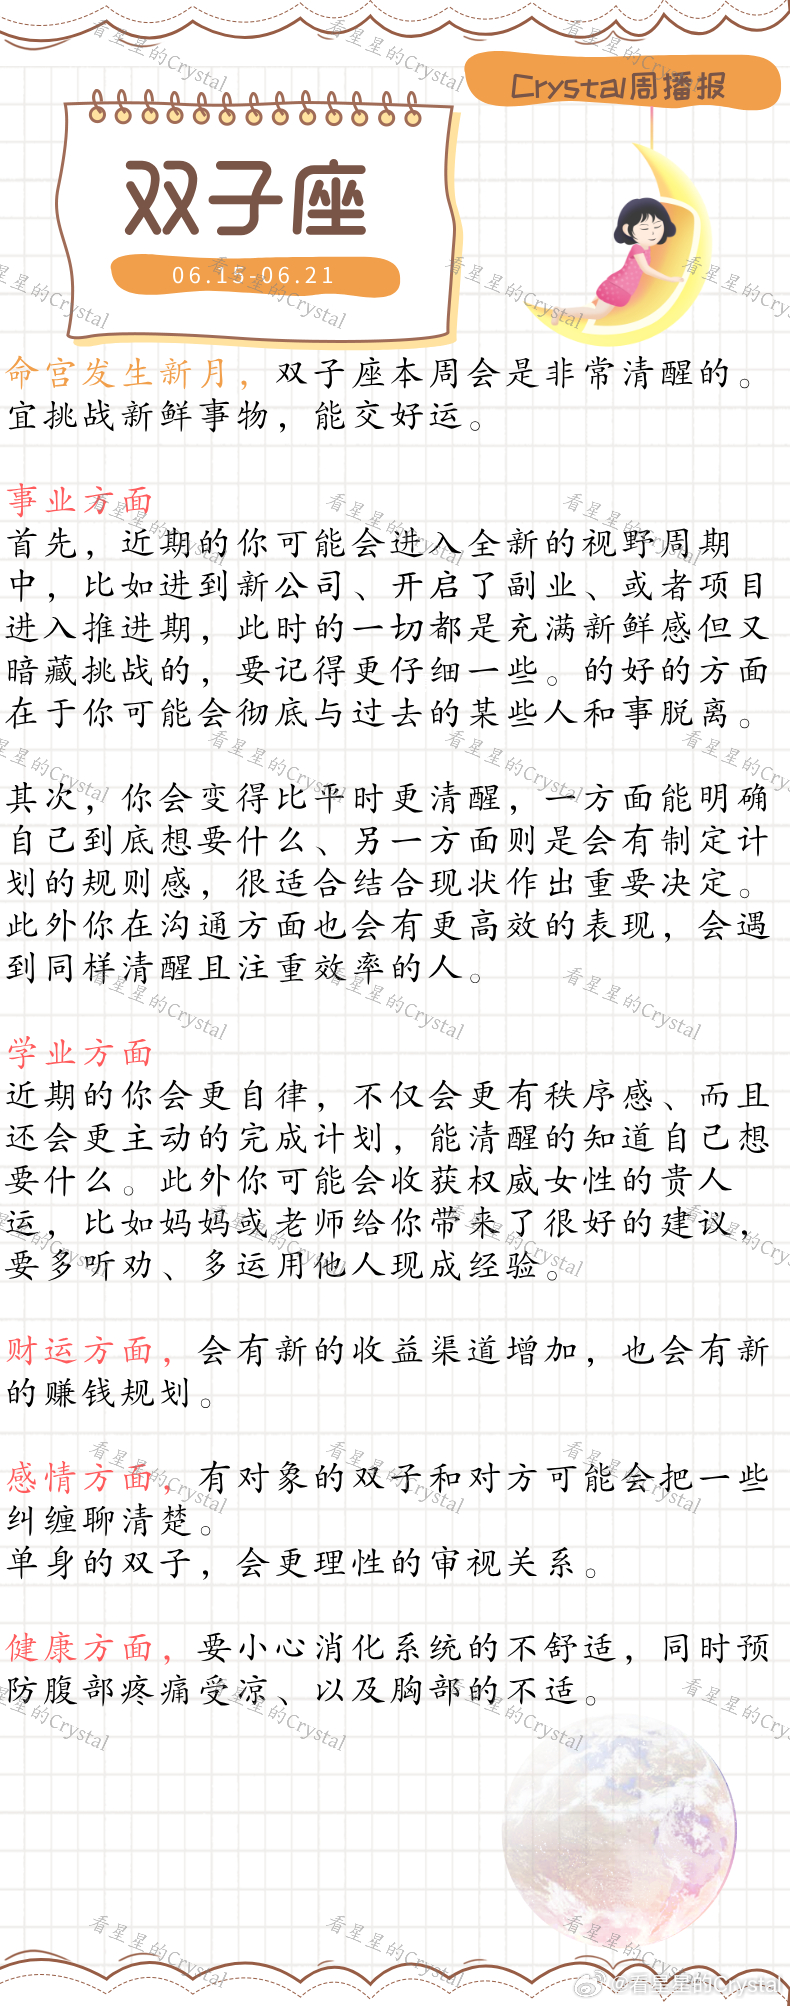 Crystal周播报
双子座
06.15-06.21
命宫发生新月，双子座本周会是非常清醒的。
宜挑战新鲜事物，能交好运。
事业方面
首先，近期的你可能会进入全新的视野周期
中，比如进到新公司、开启了副业、或者项目
进入推进期，此时的一切都是充满新鲜感但又
暗藏挑战的，要记得更仔细一些。的好的方面
在于你可能会彻底与过去的某些人和事脱离。
其次，你会变得比平时更清醒，一方面能明确
自己到底想要什么、另一方面则是会有制定计
划的规则感，很适合结合现状作出重要决定。
此外你在沟通方面也会有更高效的表现，会遇
到同样清醒且注重效率的人。
学业方面
近期的你会更自律，不仅会更有秩序感、而且
还会更主动的完成计划，能清醒的知道自己想
要什么。此外你可能会收获权威女性的贵人
运，比如妈妈或老师给你带来了很好的建议，
要多听劝、多运用他人现成经验。
财运方面，会有新的收益渠道增加，也会有新
的赚钱规划。
感情方面，有对象的双子和对方可能会把一些
纠缠聊清楚。
单身的双子，会更理性的审视关系。
健康方面，要小心消化系统的不舒适，同时预
防腹部疼痛受凉、以及胸部的不适。
@看星星的Crystal